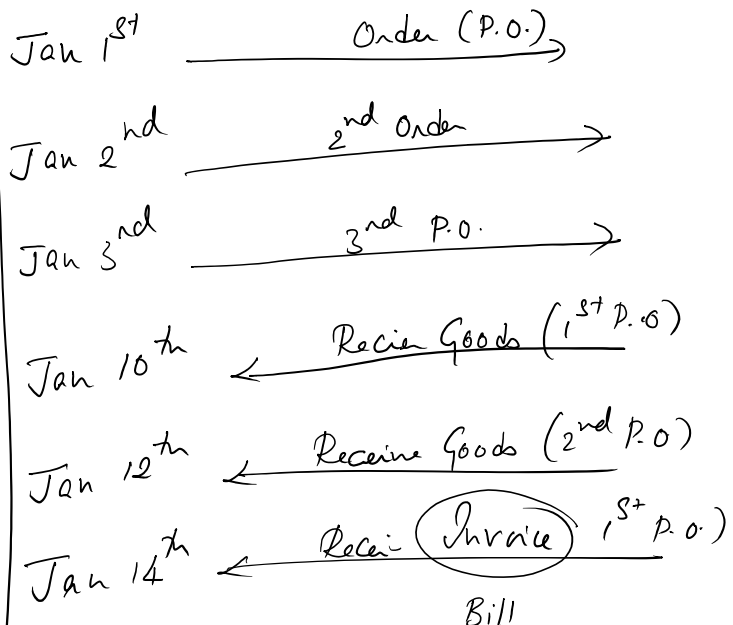 Jan 1st Order (P.O.)
Jan 2nd 2nd Order
Jan 3nd 3nd P.O.
Jan 10th Recien Goods (1st P.O)
Jan 12th Receive Goods (2nd P.O)
Jan 14th Recei- Invoice 1st P.O.)
Bill